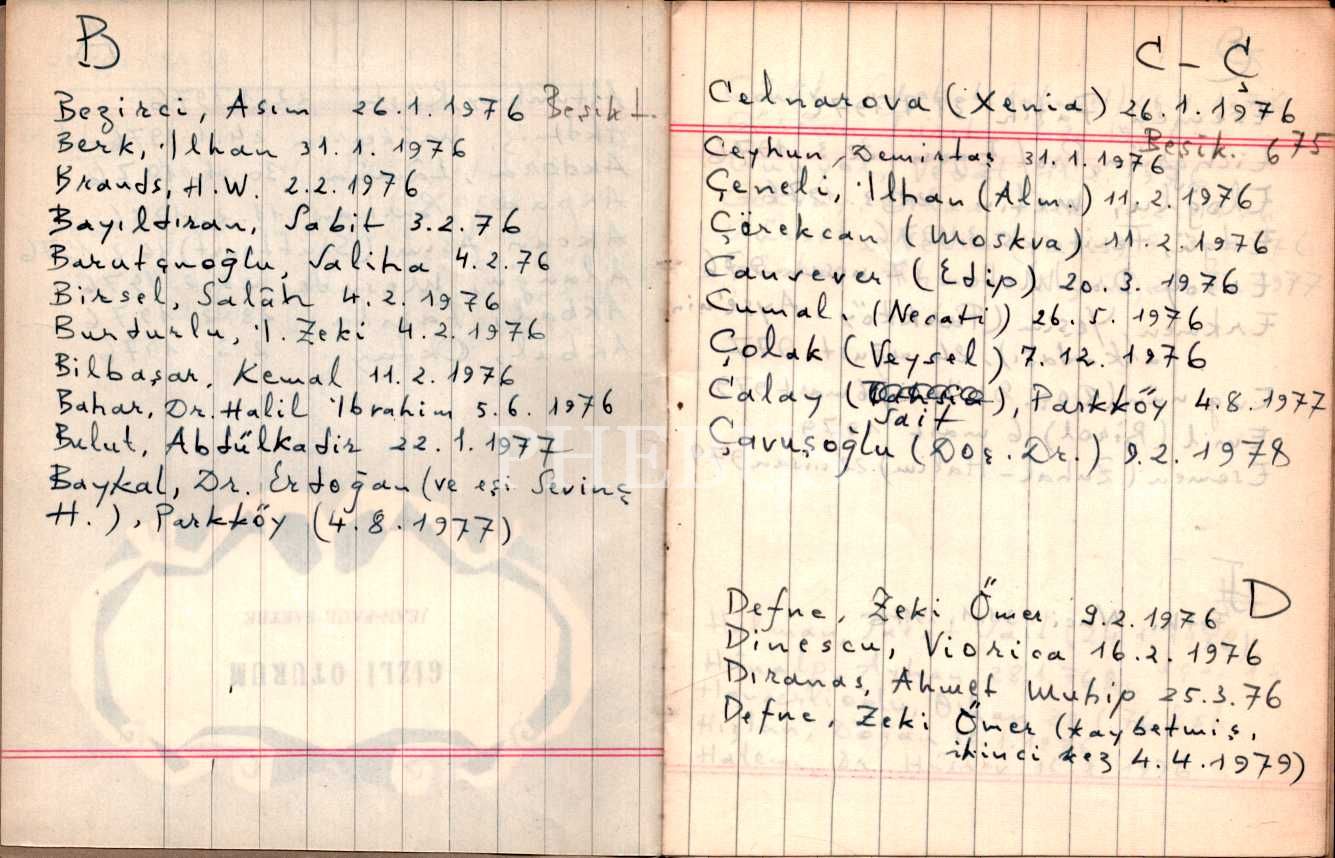 B
Bezirci, Asım 26.1.1976 Beşikt.
Berk, İlhan 31.1.1976
Brands, H.W. 2.2.1976
Bayıldıran, Sabit 3.2.76
Barutçuoğlu, Saliha 4.2.76
Birsel, Salâh 4.2.1976
Burdurlu, İ. Zeki 4.2.1976
Bilbaşar, Kemal 11.2.1976
Bahar, Dr. Halil İbrahim 5.6.1976
Bulut, Abdülkadir 22.1.1977
Baykal, Dr. Erdoğan (ve eşi Sevinç
H.), Parkköy (4.8.1977)
C - Ç
Celnarova (Xenia) 26.1.1976
Beşik. 675
Ceyhun, Demirtaş 31.1.1976
Çeneli, İlhan (Alm.) 11.2.1976
Çörekcan (Moskva) 11.2.1976
Cansever (Edip) 20.3.1976
Cumal. (Necati) 26.5.1976
Çolak (Veysel) 7.12.1976
Calay (), Parkköy 4.8.1977
Sait
Çavuşoğlu (Doç. Dr.) 9.2.1978
D
Defne, Zeki Ömer 9.2.1976
Dinescu, Viorica 16.2.1976
Dıranas, Ahmet Muhip 25.3.76
Defne, Zeki Ömer (kaybetmiş,
ikinci kez 4.4.1979)
PHEBUS
GİZLİ OTURUM